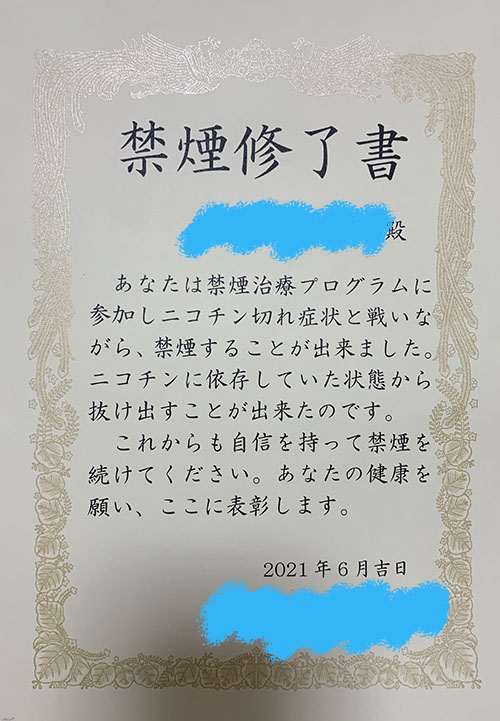 禁煙修了書
殿
あなたは禁煙治療プログラムに
参加しニコチン切れ症状と戦いな
がら、禁煙することが出来ました。
ニコチンに依存していた状態から
抜け出すことが出来たのです。
これからも自信を持って禁煙を
続けてください。あなたの健康を
願い、ここに表彰します。
2021年6月吉日